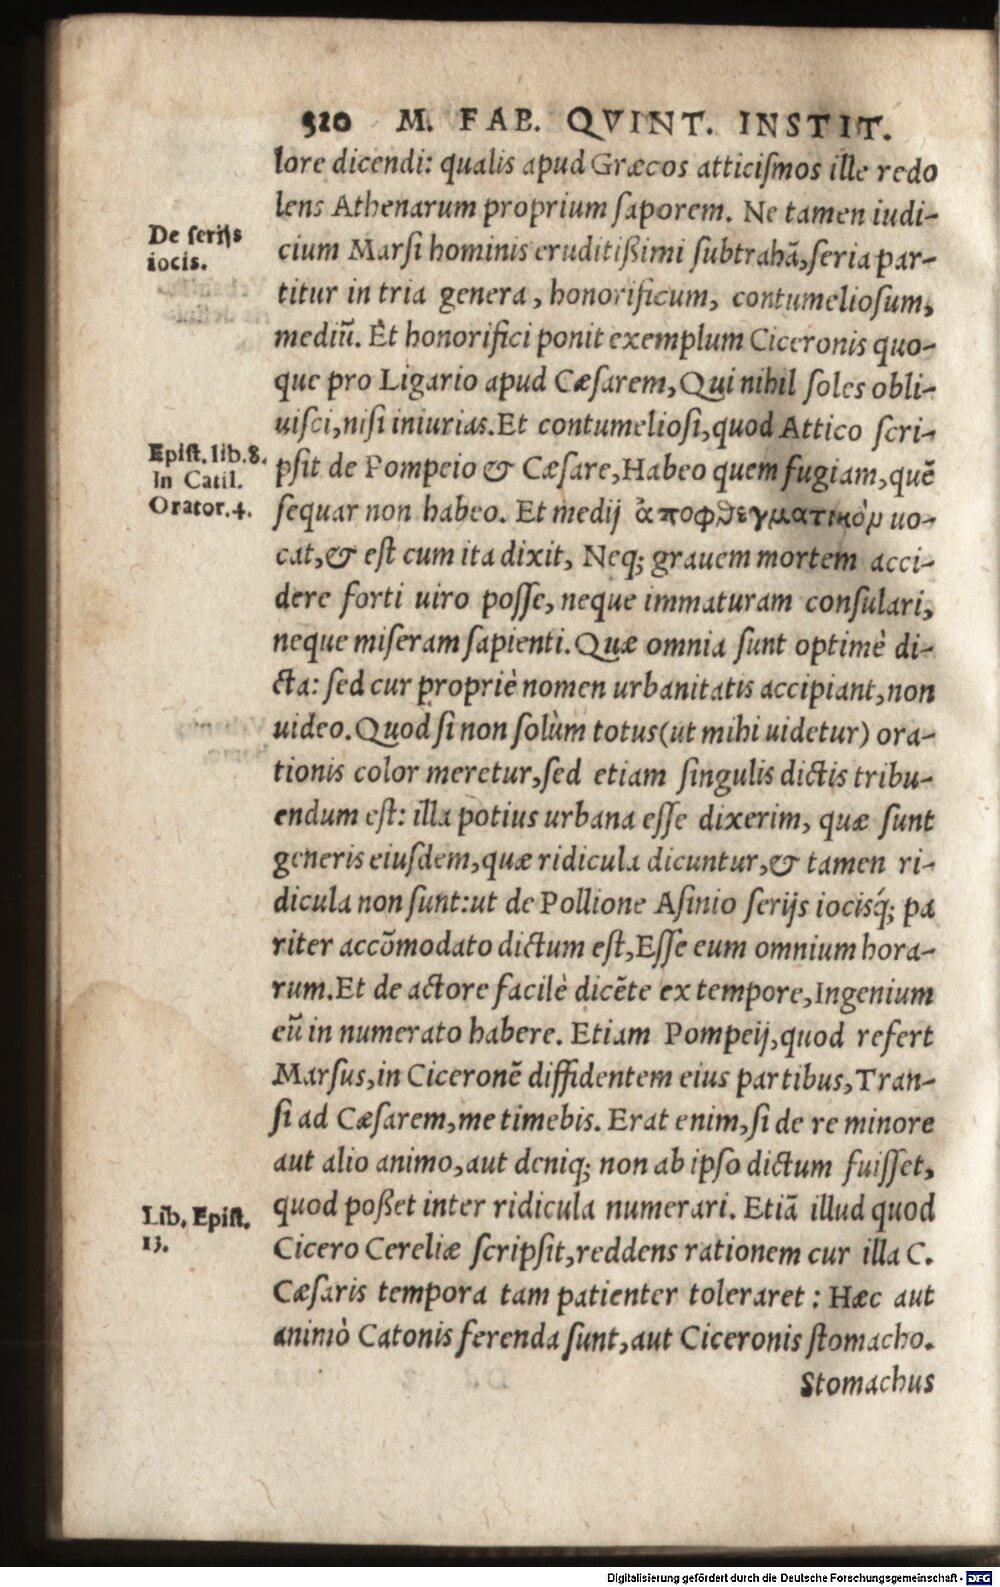 520 M. FAB. QVINT. INSTIT.
lore dicendi: qualis apud Græcos atticiſmos ille redo
lens Athenarum proprium ſaporem. Ne tamen iudi-
De ſerijs
cium Marſi hominis eruditißimi ſubtrahā, ſeria par-
iocis.
titur in tria genera, honorificum, contumelioſum,
mediū. Et honorifici ponit exemplum Ciceronis quo-
que pro Ligario apud Cæſarem, Qui nihil ſoles obli-
uiſci, niſi iniurias. Et contumelioſi, quod Attico ſcri-
Epiſt. lib. 8.
pſit de Pompeio & Cæſare, Habeo quem fugiam, quē
In Catil.
Orator. 4.
ſequar non habeo. Et medij ἀποφθεγματικὸμ uo-
cat, & eſt cum ita dixit, Neq; grauem mortem acci-
dere forti uiro poſſe, neque immaturam conſulari,
neque miſeram ſapienti. Quæ omnia ſunt optimè di-
cta: ſed cur propriè nomen urbanitatis accipiant, non
uideo. Quod ſi non ſolùm totus (ut mihi uidetur) ora-
tionis color meretur, ſed etiam ſingulis dictis tribu-
endum eſt: illa potius urbana eſſe dixerim, quæ ſunt
generis eiuſdem, quæ ridicula dicuntur, & tamen ri-
dicula non ſunt: ut de Pollione Aſinio ſerijs iocisq́; pa
riter accōmodato dictum eſt, Eſſe eum omnium hora-
rum. Et de actore facilè dicēte ex tempore, Ingenium
eū in numerato habere. Etiam Pompeij, quod refert
Marſus, in Ciceronē diffidentem eius partibus, Tran-
ſi ad Cæſarem, me timebis. Erat enim, ſi de re minore
aut alio animo, aut deniq; non ab ipſo dictum fuiſſet,
Lib. Epiſt.
quod poßet inter ridicula numerari. Etiā illud quod
13.
Cicero Cereliæ ſcripſit, reddens rationem cur illa C.
Cæſaris tempora tam patienter toleraret: Hæc aut
animò Catonis ferenda ſunt, aut Ciceronis ſtomacho.
Stomachus
Digitalisierung gefördert durch die Deutsche Forschungsgemeinschaft - DFG